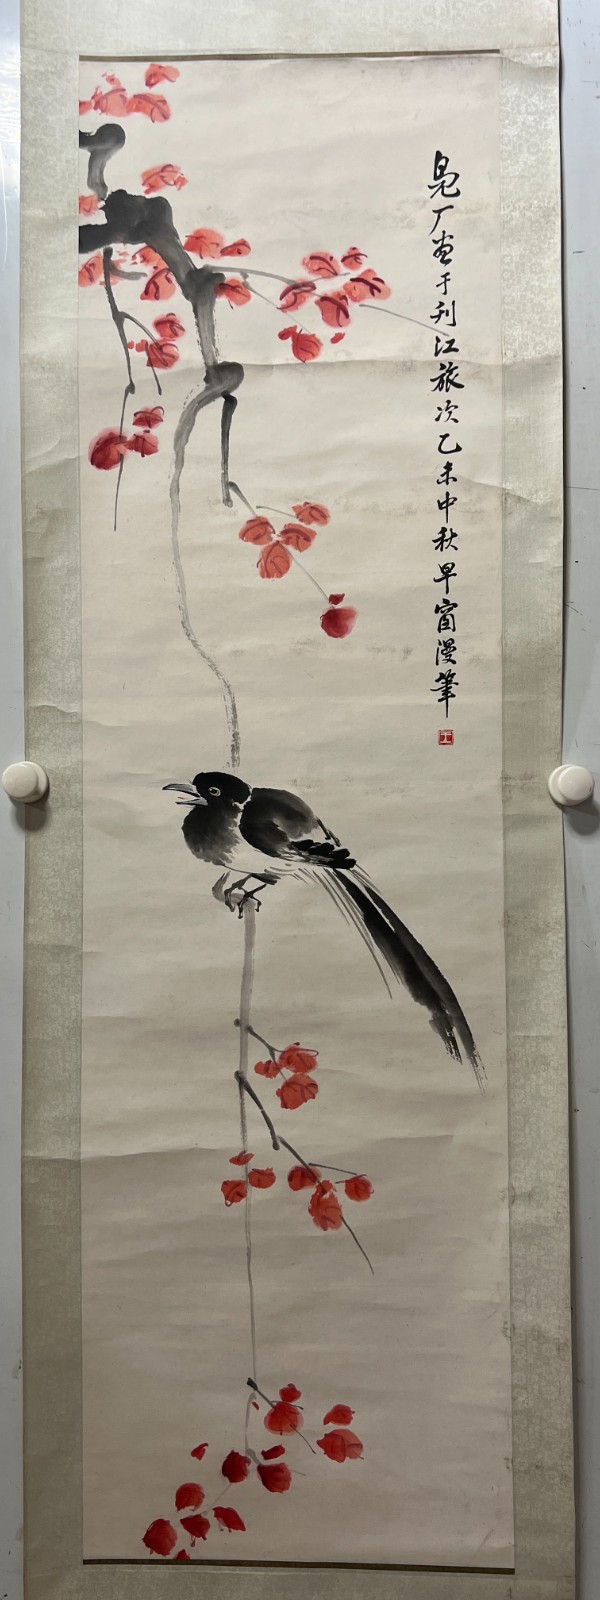 厂画于刊江旅次乙未中秋早窗漫筆
王